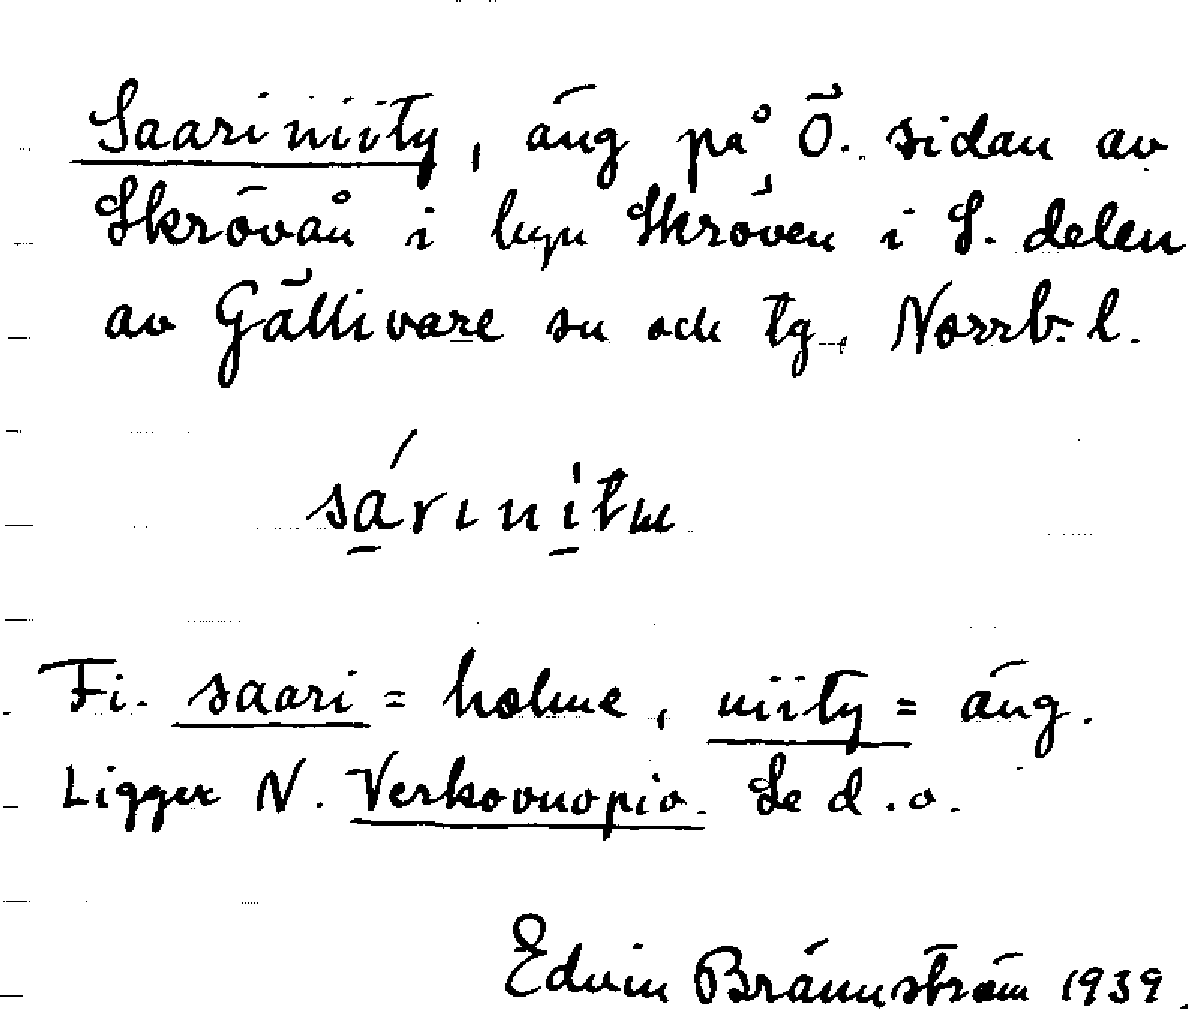 Saariniity, äng på Ö. sidan av
Skrövån i byn Skröven i S. delen
av Gällivare sn och tg., Norrb. l.
sárinìtɯ
Fi. saari = holme, niity = äng.
Ligger N. Verkovuopio. Se d. o.
Edvin Brännström 1939.